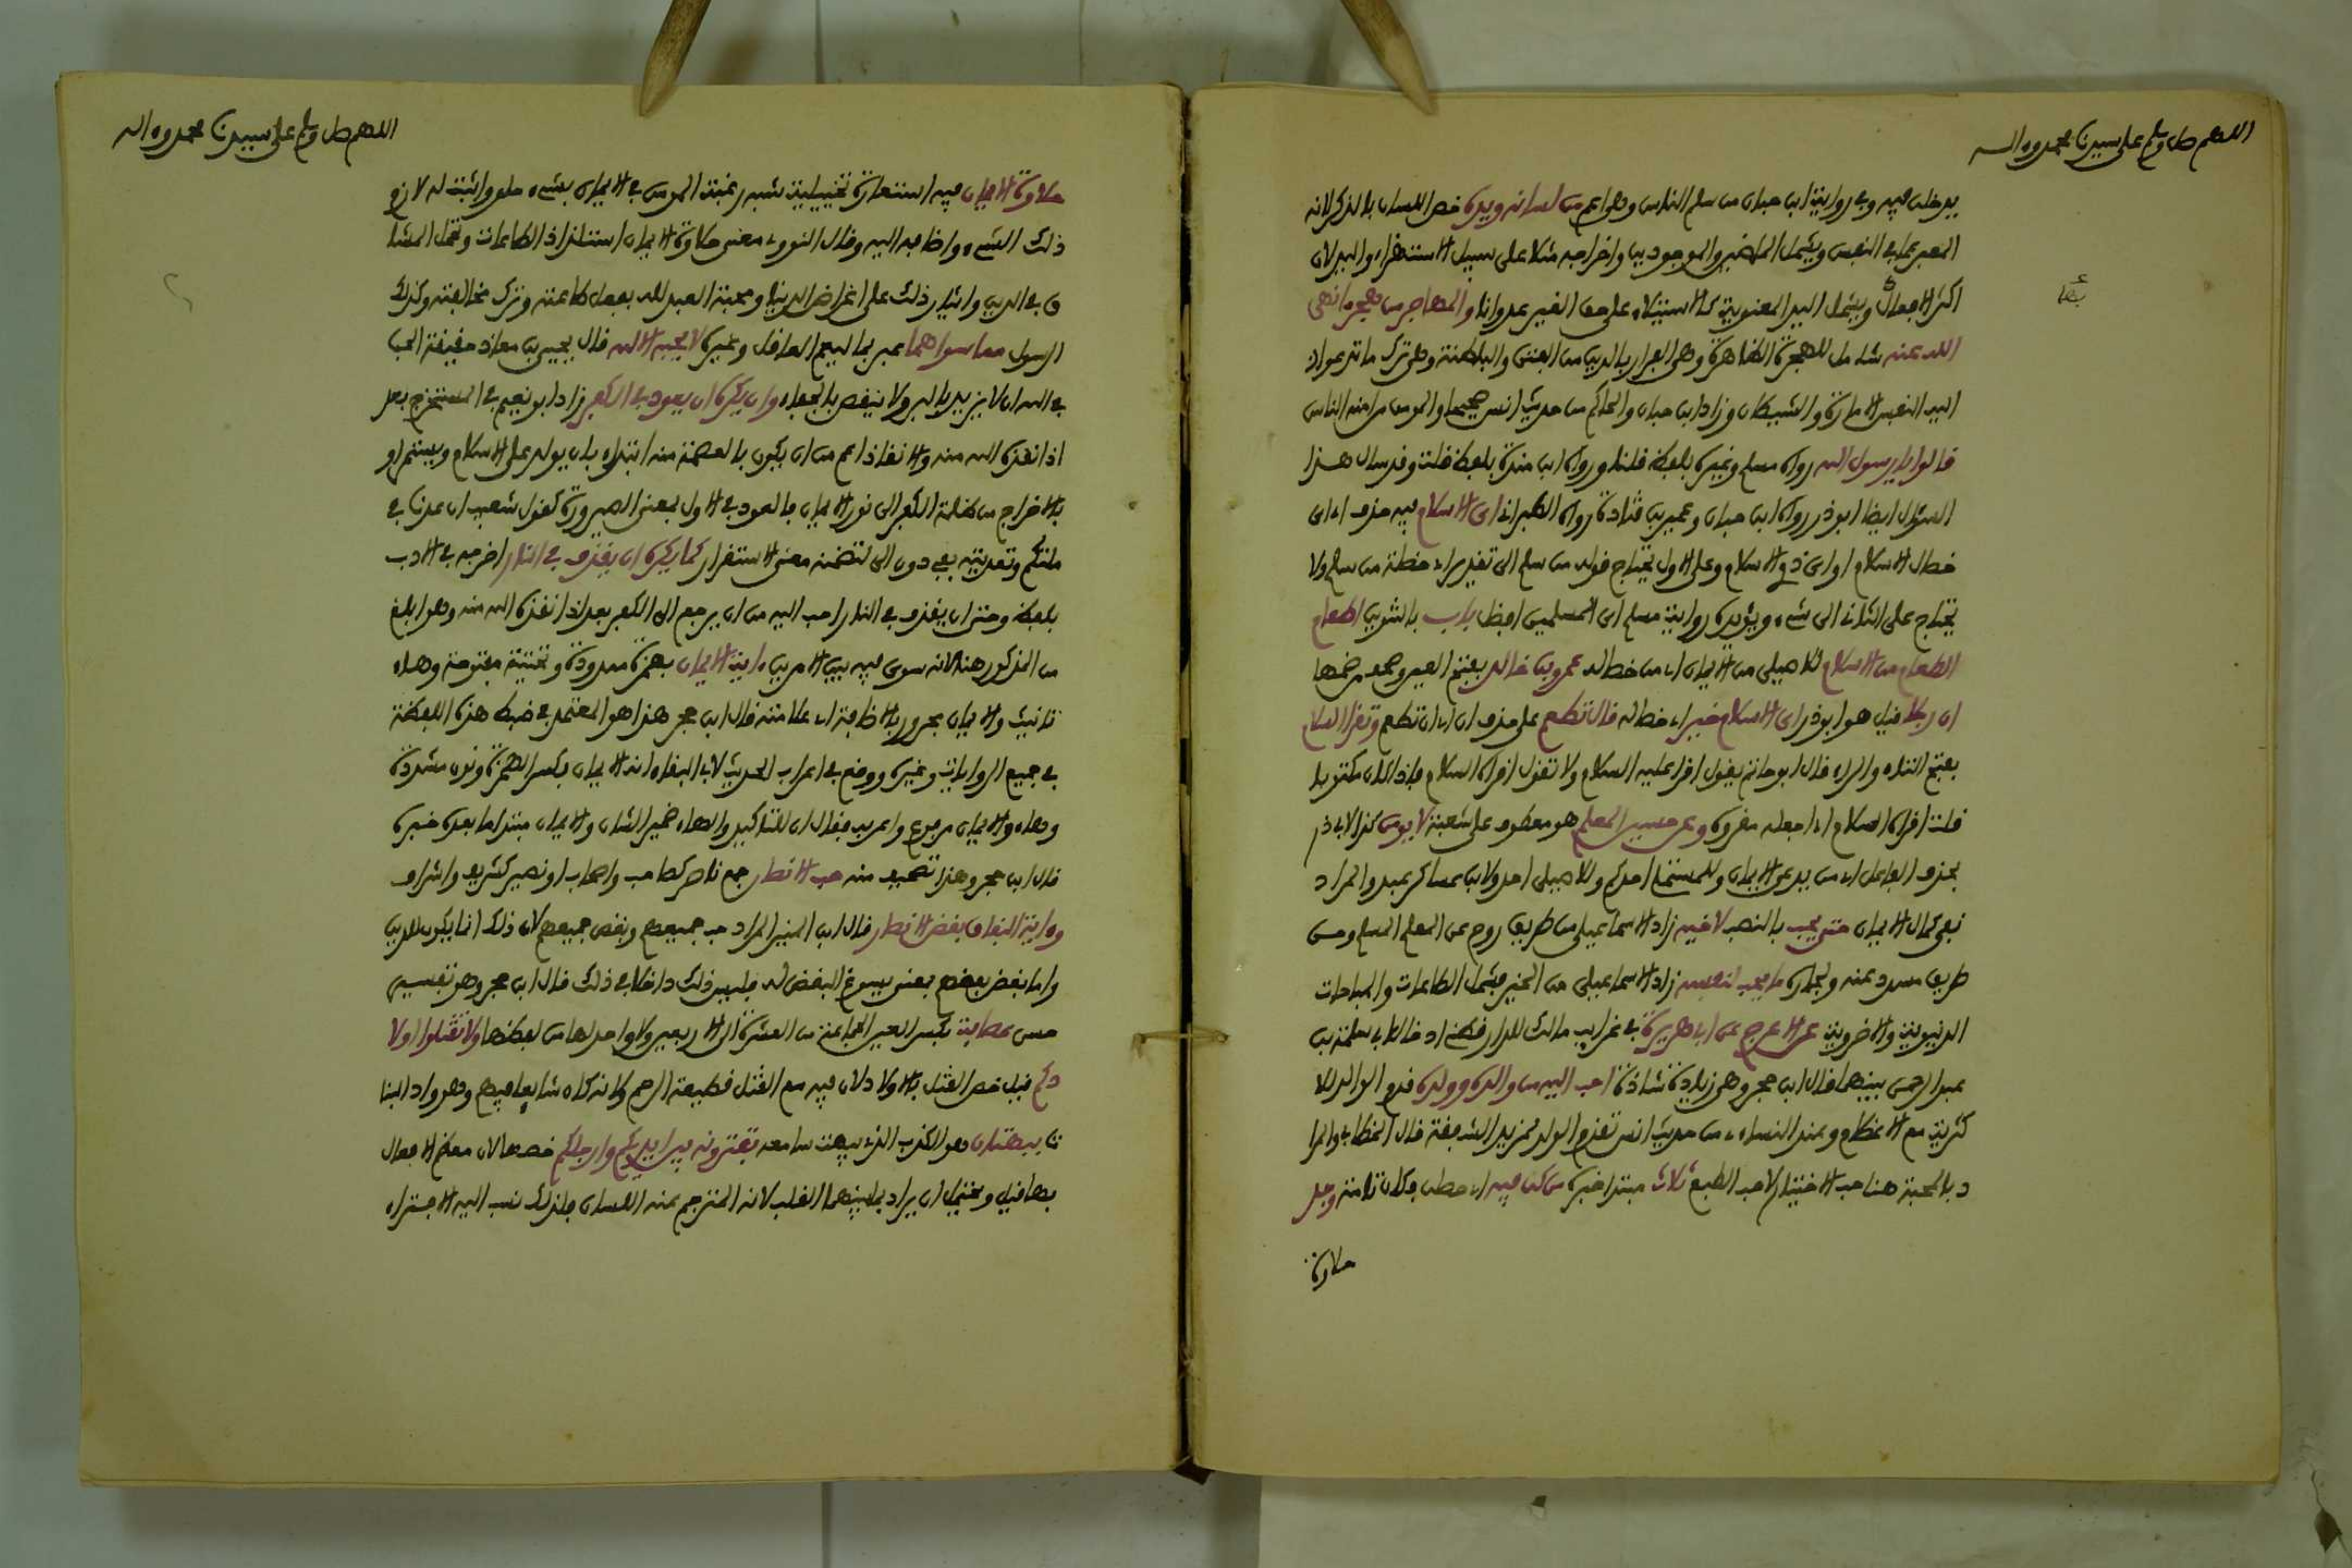 اللهم صل وسلم على سيدنا محمد وءاله
يدخلن فيه وفي رواية ابن حبان من سلم الناس وهو اعم من لسانه ويده خص اللسان بالذكر لانه
المعبر عما في النفس ويشمل الماضين والموجودين واخراجه مثلا على سبيل الاستهزاء واليد لان
اكثر الافعال بها ويشمل اليد المعنوية كالاستيلاء على حق الغير عدوانا والمهاجر من هجر ما نهى
الله عنه شامل للهجرة الظاهرة وهي الفرار بالدين من الفتن والباطنة وهي ترك ما تدعوا
اليه النفس الامارة والشيطان وزاد ابن حبان والحاكم من حديث انس صحيحا والمومن من امنه الناس
قالوا يا رسول الله رواه مسلم وغيره بلفظ قلنا ورواه ابن مندة بلفظ قلت وقد سال هذا
السؤال ايضا ابو ذر رواه ابن حبان وعمير بن قتادة رواه الطبراني اي الاسلام فيه حذف اي اي
خصال الاسلام او اي ذوي الاسلام وعلى الاول يحتاج قوله من سلم الى تقدير اي خصلة من سلم ولا
يحتاج على الثاني الى شيء ويؤيده رواية مسلم اي المسلمين افضل باب بالتنوين اطعام
الطعام من الاسلام للاصيلي من الايمان اي من خصاله عمرو بن خالد بفتح العين وصحف من ضمها
ان رجلا قيل هو ابو ذر اي الاسلام خير اي خصاله قال تطعم على حذف ان اي ان تطعم وتقرا السلام
بفتح التاء والراء قال ابو حاتم يقول اقرا عليه السلام ولا تقول اقراه السلام فاذا كان مكتوبا
قلت اقراه السلام اي اجعله مقروه وعن حسين المعلم هو معطوف على شعبة لا يومن كذا لابي ذر
بحذف الفاعل اي من يدعي الايمان وللمستملي احدكم وللاصيلي احد ولابن عساكر عبد والمراد
نفي كمال الايمان حتى يحب بالنصب لاخيه زاد الاسماعيلي من طريق روح عن المعلم المسلم ومن
طريق مسدد عنه ولجاره ما يحب لنفسه زاد الاسماعيلي من الخير فيشمل الطاعات والمباحات
الدنيوية والاخروية عن الاعرج عن ابي هريرة في غرايب مالك للدارقطني ادخال ابي سلمة بن
عبد الرحمن بينهما قال ابن حجر وهي زيادة شاذة احب اليه من والده وولده قدم الوالد للا
كثرية مع الاعظام وعند النساءي من حديث انس تقديم الولد لمزيد الشفقة قال الخطابي والمرا
د بالمحبة هنا حب الاختيار لا حب الطبع ثلاث مبتدا خبره من كن فيه اي حصلن فكان تامة وجد
حلاوة
اللهم صل وسلم على سيدنا محمد وءاله
حلاوة الايمان فيه استعارة تخييلية شبه رغبة المومن في الايمان بشيء حلو واثبت له لازم
ذلك الشيء واضافه اليه وقال النووي معنى حلاوة الايمان استلذاذ الطاعات وتحمل المشا
ق في الدين وايثار ذلك على اغراض الدنيا ومحبة العبد لله بفعل طاعته وترك مخالفته وكذلك
الرسول مما سواهما عبر بما ليعم العاقل وغيره لا يحبه الا لله قال يحيى بن معاذ حقيقة الحب
في الله ان لا يزيد بالبر ولا ينقص بالجفاء وان يكره ان يعود في الكفر زاد ابو نعيم في المستخرج بعد
اذ انقذه الله منه والانقاذ اعم من ان يكون بالعصمة منه ابتداء بان يولد على الاسلام ويستمر او
بالاخراج من ظلمة الكفر الى نور الايمان فالعود في الاول بمعنى الصيرورة كقول شعيب ان عدنا في
ملتكم وتعديته بفي دون الى لتضمنه معنى الاستقرار كما يكره ان يقذف في النار اخرجه في الادب
بلفظ وحتى ان يقذف في النار احب اليه من ان يرجع الى الكفر بعد اذ انقذه الله منه وهو ابلغ
من المذكور هنا لانه سوى فيه بين الامرين ءاية الايمان بهمزة ممدودة وتحتية مفتوحة وهاء
تانيث والايمان مجرور بالاضافة اي علامته قال ابن حجر هذا هو المعتمد في ضبط هذه اللفظة
في جميع الروايات وغيره ووقع في اعراب الحديث لابي البقاء انه الايمان بكسر الهمزة ونون مشددة
وهاء والايمان مرفوع واعربه فقال ان للتاكيد والهاء ضمير الشان والايمان مبتدا ما بعده خبره
قال ابن حجر وهذا تصحيف منه حب الانصار جمع ناصر كصاحب واصحاب او نصير كشريف واشراف
وءاية النفاق بغض الانصار قال ابن المنير المراد حب جميعهم وبغض جميعهم لان ذلك انما يكون للدين
واما بغض بعضهم بمعنى يسوغ البغض له فليس ذلك داخلا في ذلك قال ابن حجر وهو تقسيم
حسن عصابة بكسر العين الجماعة من العشرة الى الاربعين ولا واحد لها من لفظها ولا تقتلوا اولا
دكم قيل خص القتل بالاولاد لان فيه مع القتل قطيعة الرحم ولانه كان شايعا فيهم وهو واد البنا
ت ببهتان هو الكذب الذي يبهت سامعه تفترونه بين ايديكم وارجلكم خصهما لان معظم الافعال
بهما قيل ويحتمل ان يراد بما بينهما القلب لانه المترجم عنه اللسان فلذلك نسب اليه الافتراء